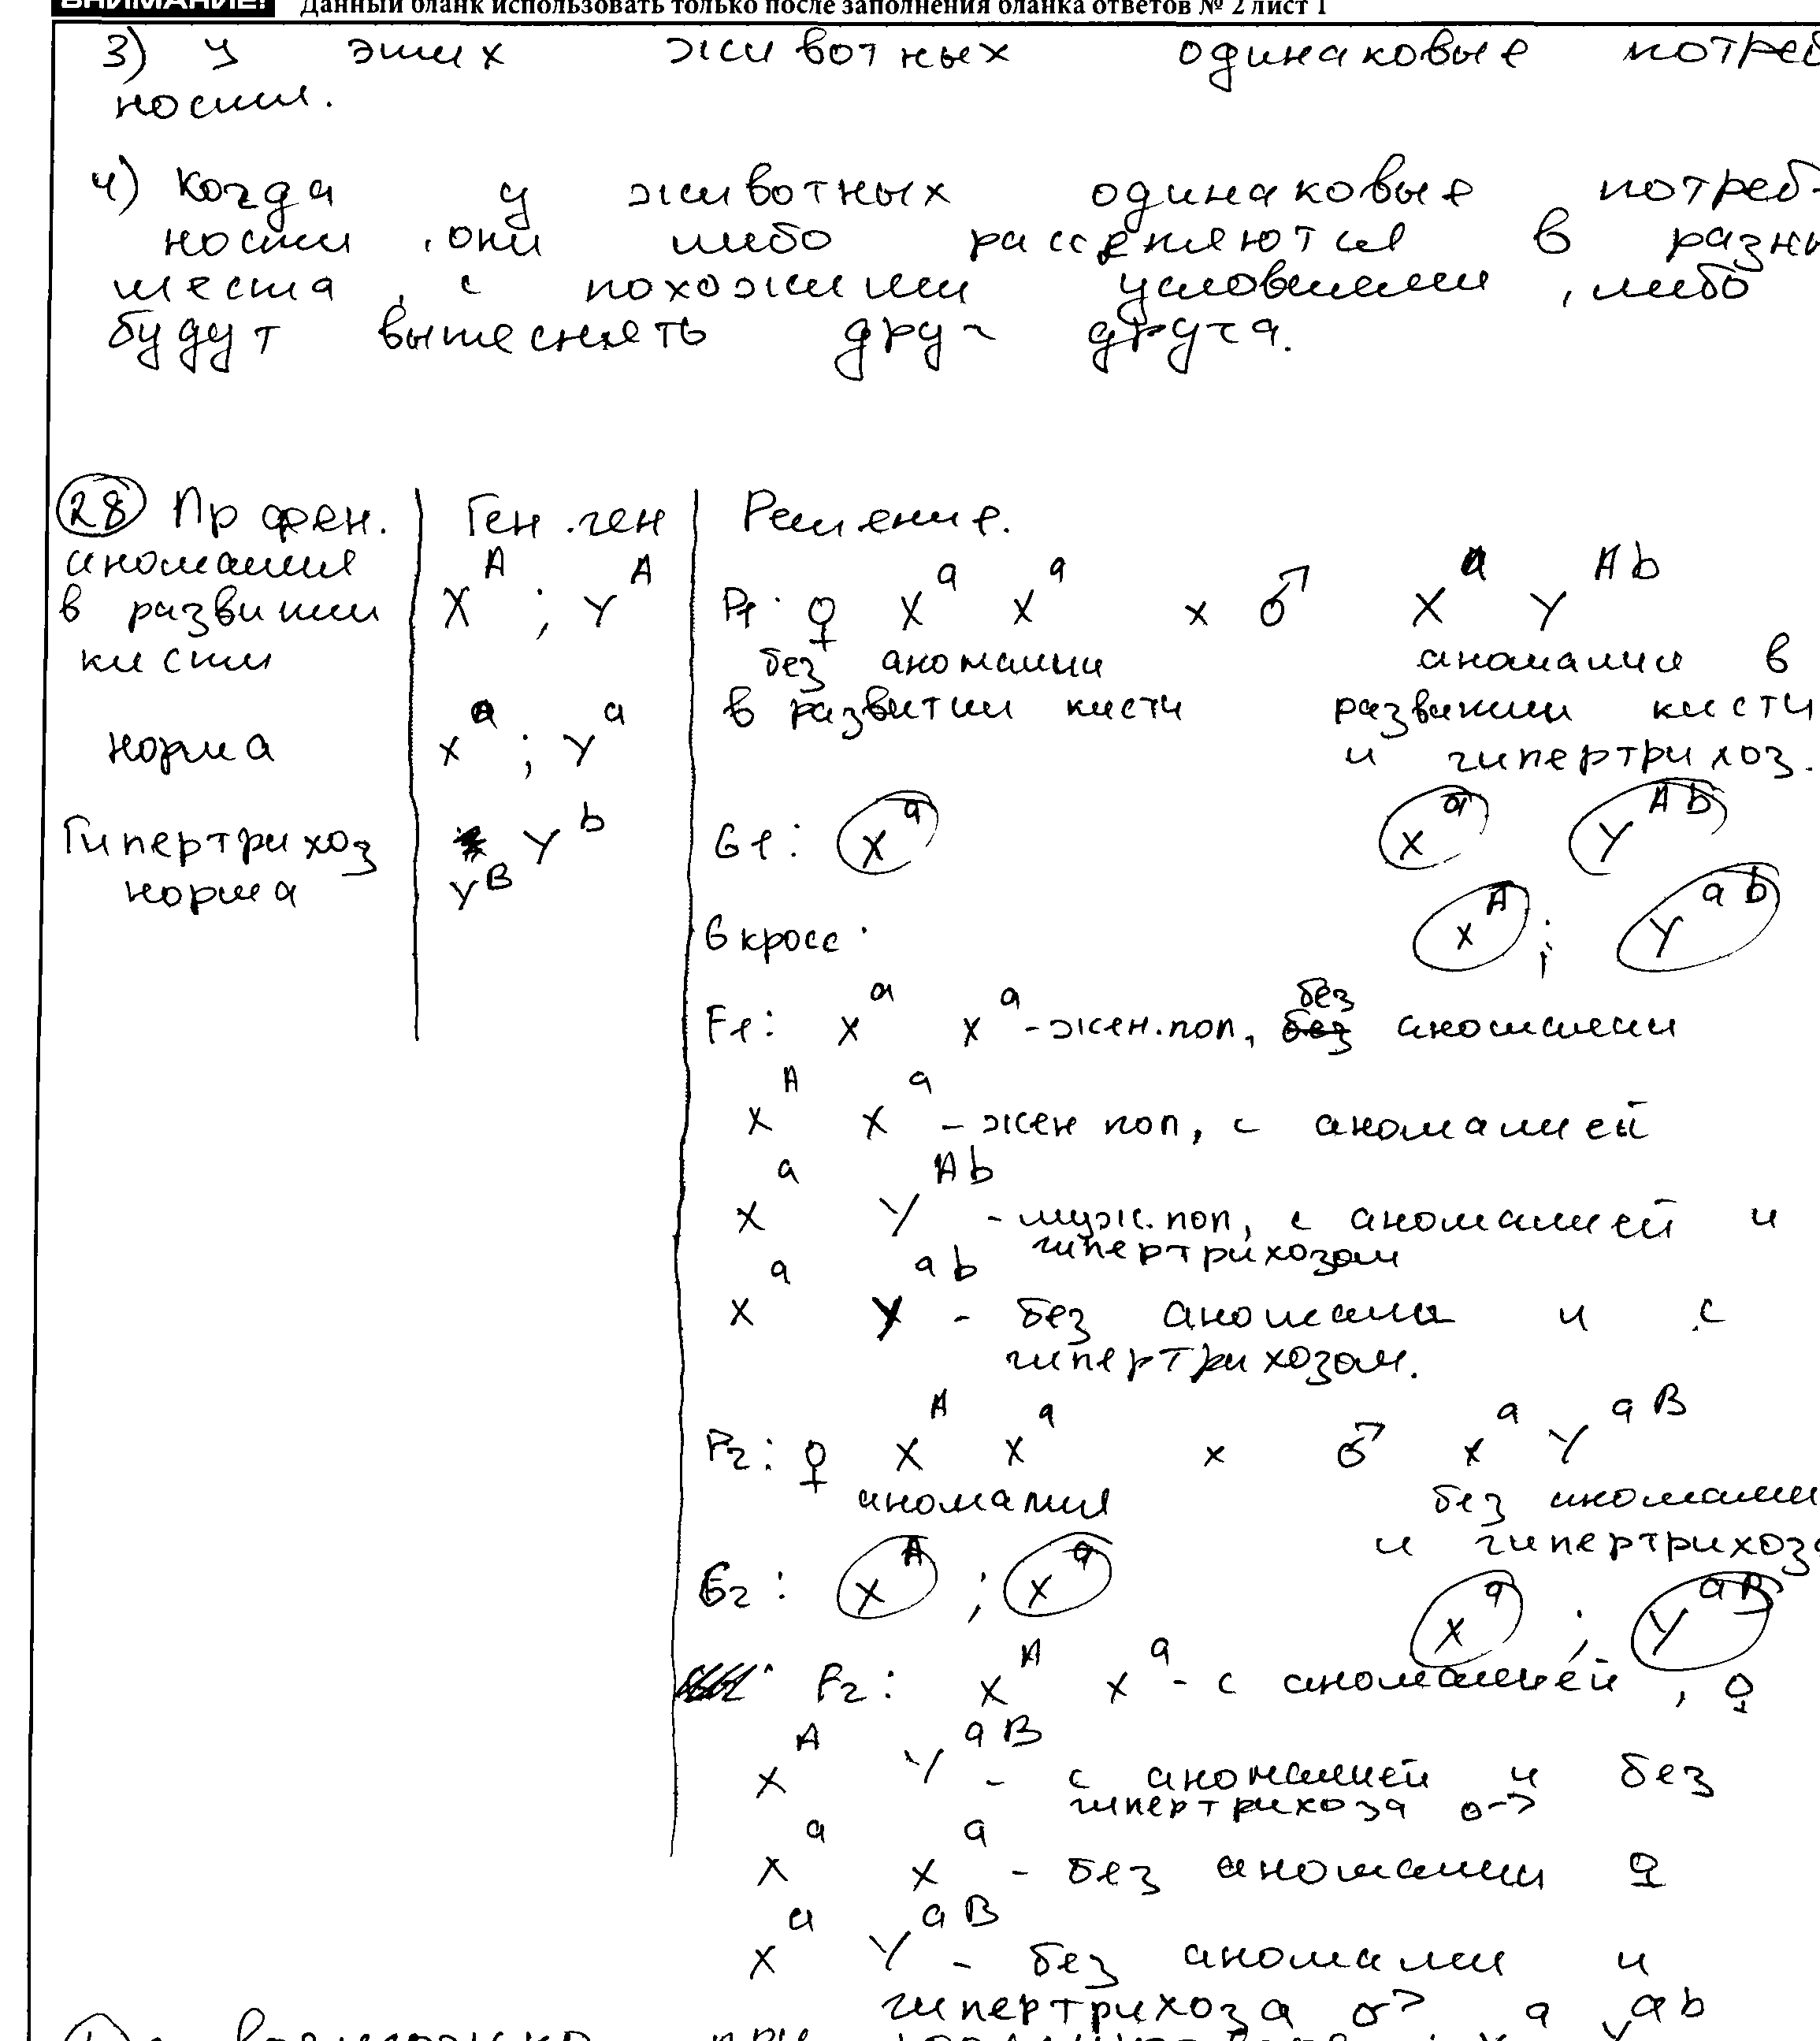 ВНИМАНИЕ! Данный бланк использовать только после заполнения бланка ответов № 2 лист 1
3) У этих животных одинаковые потреб
ности.
4) Когда у животных одинаковые потреб-
ности, они либо расселяются в разны
места, с похожими условиями, либо
будут вытеснять друг друга.
28 Пр фен. | Ген.ген | Решение.
аномалия в развитии кисти | X^A ; Y^A
норма | X^a ; Y^a
Гипертрихоз | Y^b
норма | Y^B
P1: ♀ X^a X^a x ♂ X^a Y^Ab
без аномалии аномалия в
в развитии кисти развитии кисти
и гипертрихоз.
G1: X^a X^a Y^Ab
G кросс: X^A ; Y^ab
F1: X^a X^a - жен.пол, без аномалии
X^A X^a - жен пол, с аномалией
X^a Y^Ab - муж.пол, с аномалией и
гипертрихозом
X^a Y^ab - без аномалии и с
гипертрихозом.
P2: ♀ X^A X^a x ♂ X^a Y^aB
аномалия без аномалии
и гипертрихоза
G2: X^A ; X^a X^a ; Y^aB
F2: X^A X^a - с аномалией, ♀
X^A Y^aB - с аномалией и без
гипертрихоза ♂
X^a X^a - без аномалии ♀
X^a Y^aB - без аномалии и
гипертрихоза ♂